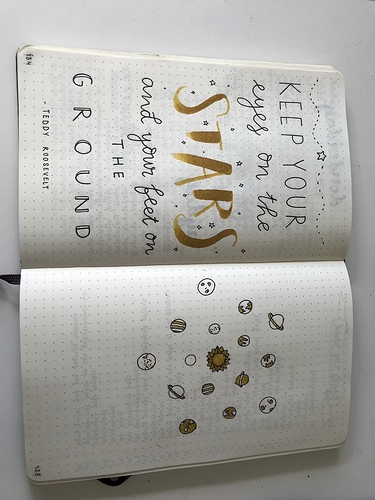 KEEP YOUR
eyes on the
STARS
and your feet on
THE
GROUND
- TEDDY ROOSEVELT.